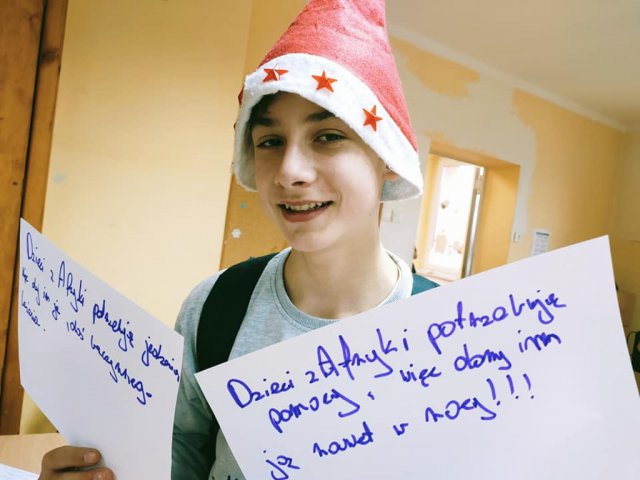 Dzieci z Afryki potrzebują jedzenia,
więc dajmy im je i
Dzieci z Afryki potrzebują
pomocy, więc dajmy im
ją nawet w nocy!!!